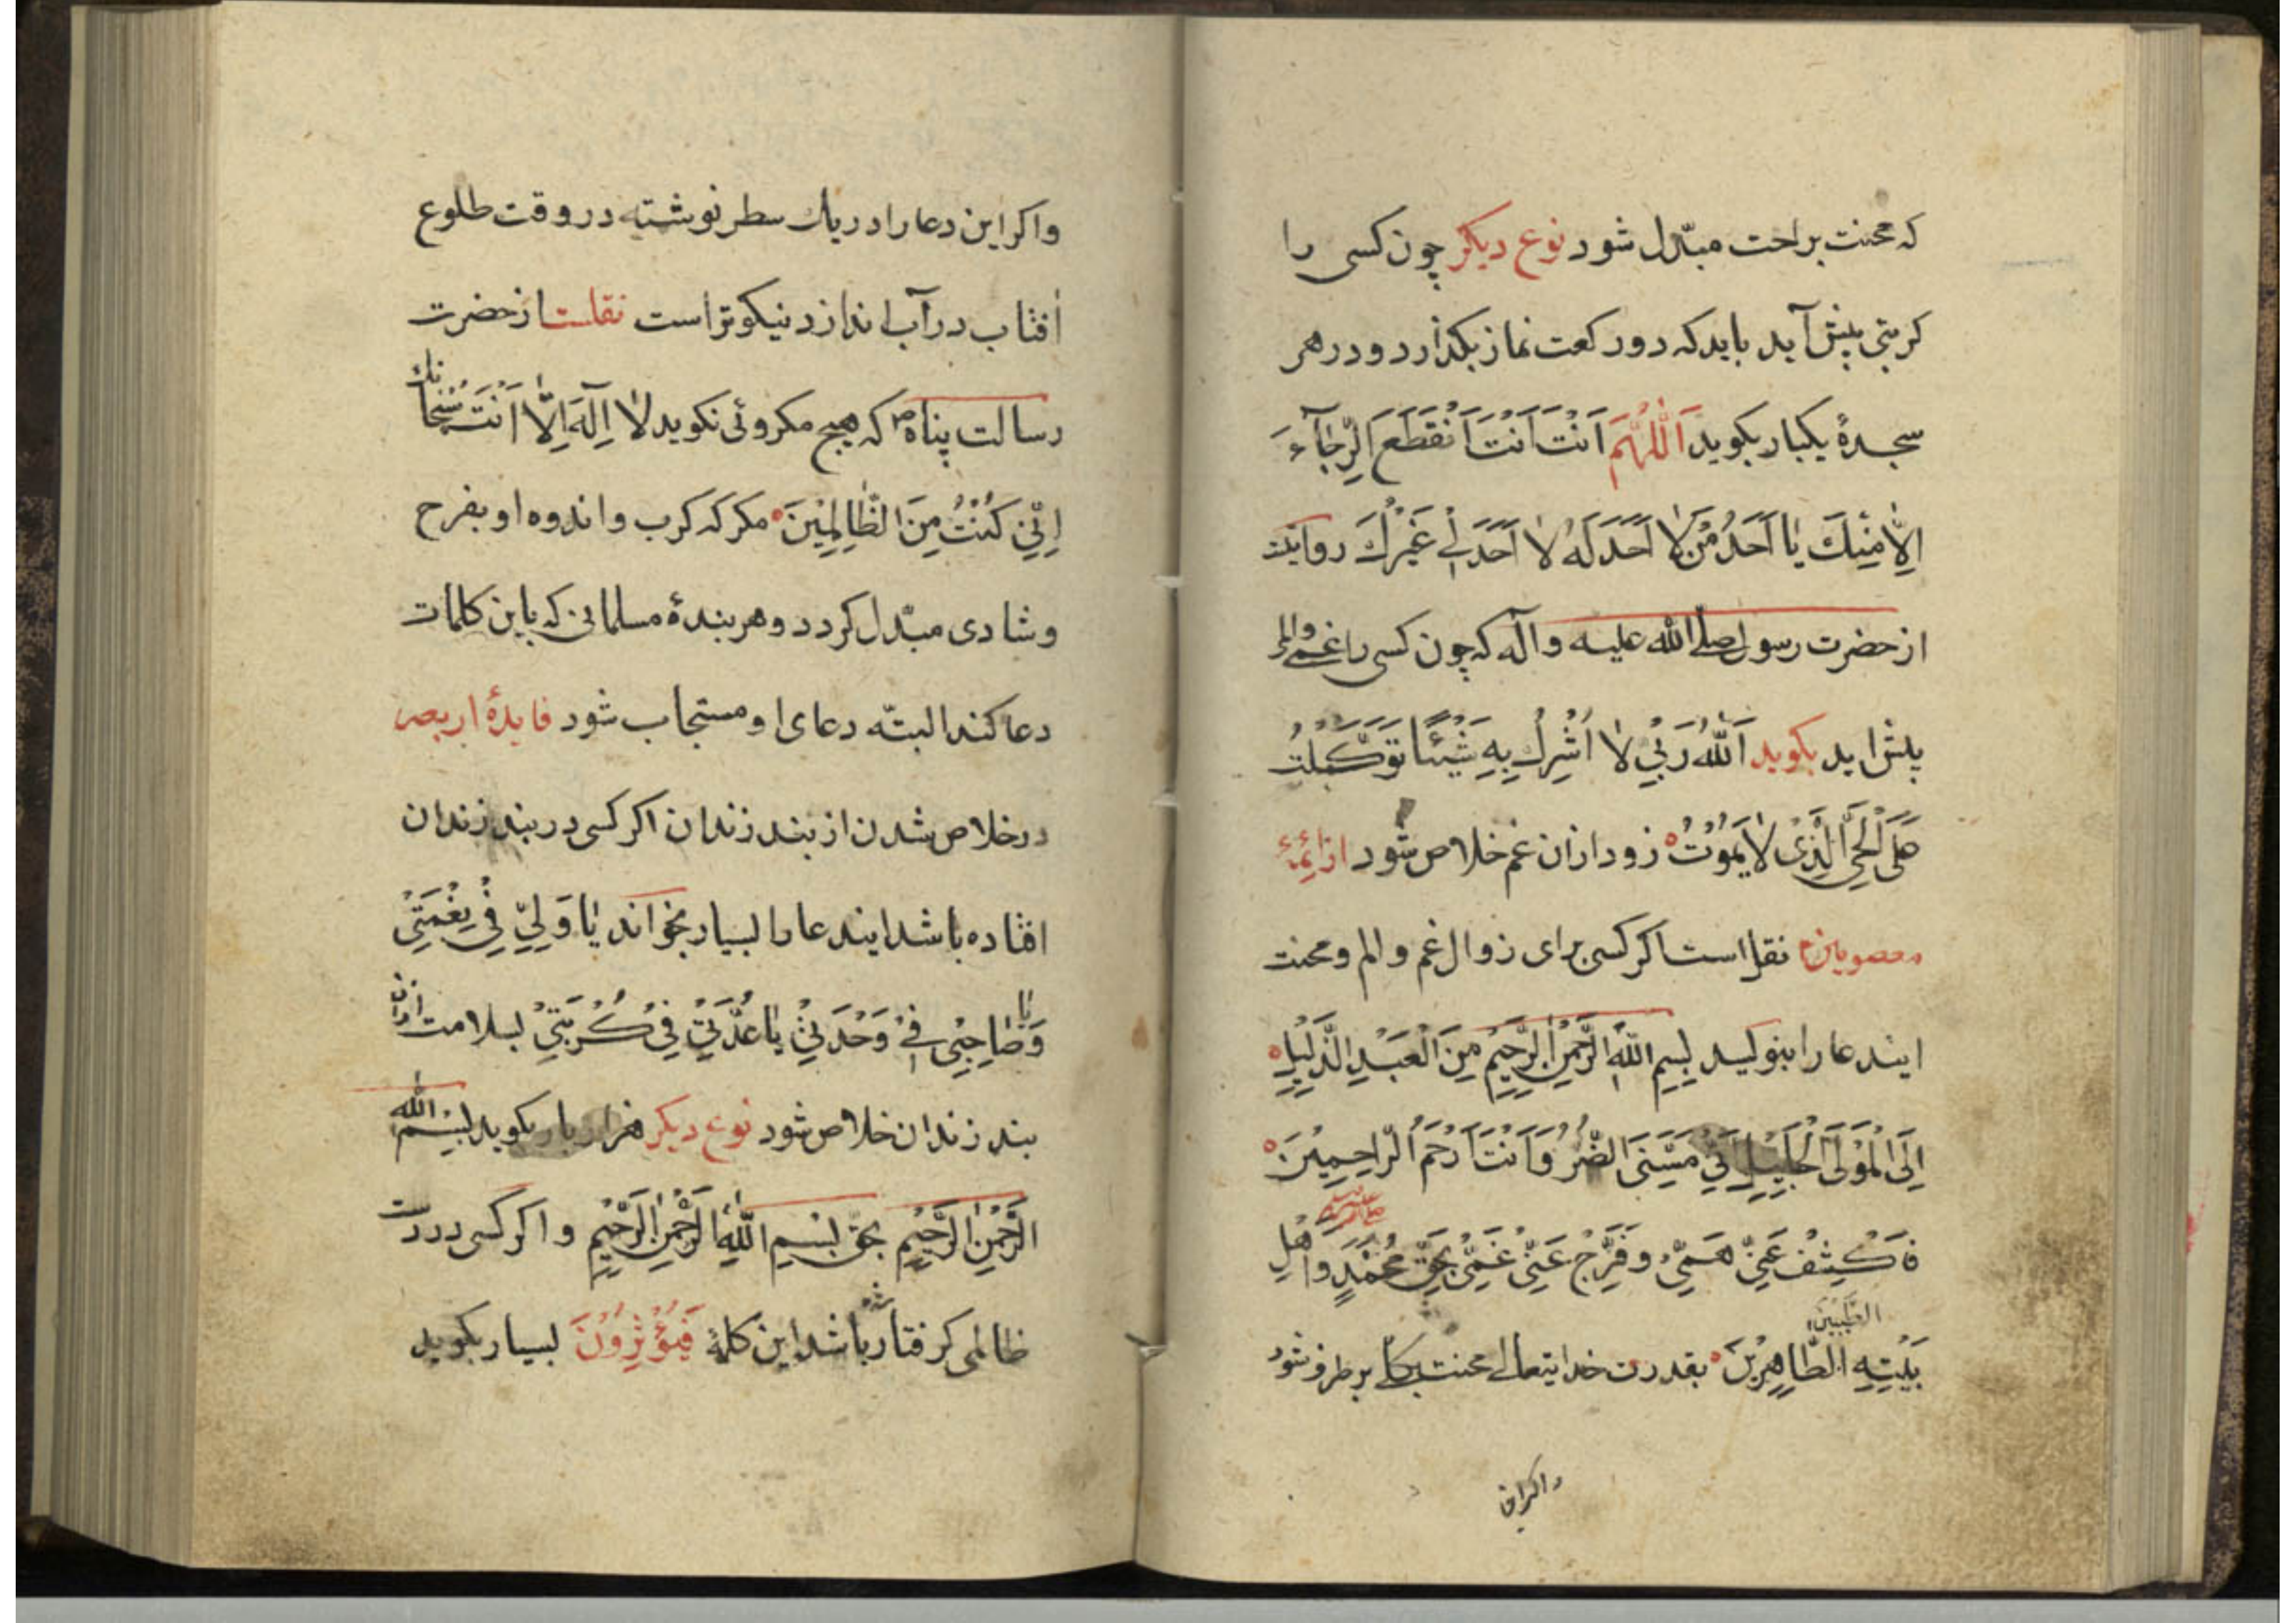 که محنت براحت مبدّل شود نوع دیکر چون کسی را
کربتی پیش آید باید که دو رکعت نماز بکذارد و در هر
سجدهٔ یکبار بکوید اَللّٰهُمَّ اَنْتَ اَنْتَ اَنْقَطَعَ الرَّجٰآءَ
اِلّٰا مِنْكَ یٰا اَحَدُ مَنْ لٰا اَحَدَ لَهُ لٰا اَحَدَ لِی غَیْرُكَ روایتت
از حضرت رسول صلی الله علیه و آله که چون کسی را غمی و المی
پیش اید بکوید اَللّٰهُ رَبِّیْ لٰا اُشْرِكُ بِهِ شَیْئًا تَوَكَّلْتُ
عَلَی الْحَیِّ الَّذِیْ لٰا یَمُوْتُ زود از ان غم خلاص شود از ائمهٔ
معصومین نقل است اکر کسی برای زوال غم و الم و محنت
ایندعا را بنویسد بِسِمِ اللّٰهِ الرَّحْمٰنِ الرَّحِیْمِ مِنَ الْعَبْدِ الذَّلِیْلِ
اِلَی الْمَوْلَی الْجَلِیْلِ اَنِّیْ مَسَّنِیَ الضُّرُّ وَ اَنْتَ اَرْحَمُ الرّٰاحِمِیْنَ
فَاكْشِفْ عَنِّیْ هَمِّیْ وَ فَرِّجْ عَنِّیْ غَمِّیْ بِحَقِّ مُحَمَّدٍ وَ اَهْلِ
بَیْتِهِ الطَّیِّبِیْنَ الطّٰاهِرِیْنَ بقدرت خدایتعالی محنت بکلّی برطرف شود
و اکر این
و اکر این دعا را در یك سطر نوشته در وقت طلوع
اٰفتاب در آب اندازد نیکوتر است نقلست از حضرت
رسالت پناه ص که هیچ مکروئی نکوید لٰا اِلٰهَ اِلّٰا اَنْتَ سُبْحٰانَكَ
اِنِّیْ كُنْتُ مِنَ الظّٰالِمِیْنَ مکر که کرب و اندوه او بفرح
و شادی مبدّل کردد و هر بندهٔ مسلمانی که باین کلمات
دعا کند البتّه دعای او مستجاب شود فایدهٔ اربعین
در خلاص شدن از بند زندان اکر کسی در بند زندان
افتاده باشد ایندعا را بسیار بخواند یٰا وَلِیِّ فِیْ نِعْمَتِیْ
وَ یٰا صٰاحِبِیْ فِیْ وَحْدَتِیْ یٰا عُدَّتِیْ فِیْ كُرْبَتِیْ بسلامت از ان
بند زندان خلاص شود نوع دیکر هزار بار بکوید بِسْمِ اللّٰهِ
الرَّحْمٰنِ الرَّحِیْمِ بحق بِسْمِ اللّٰهِ الرَّحْمٰنِ الرَّحِیْمِ و اکر کسی در دست
ظالمی کرفتار شده باشد این کلمهٔ فَیُؤْثِرُوْنَ بسیار بکوید